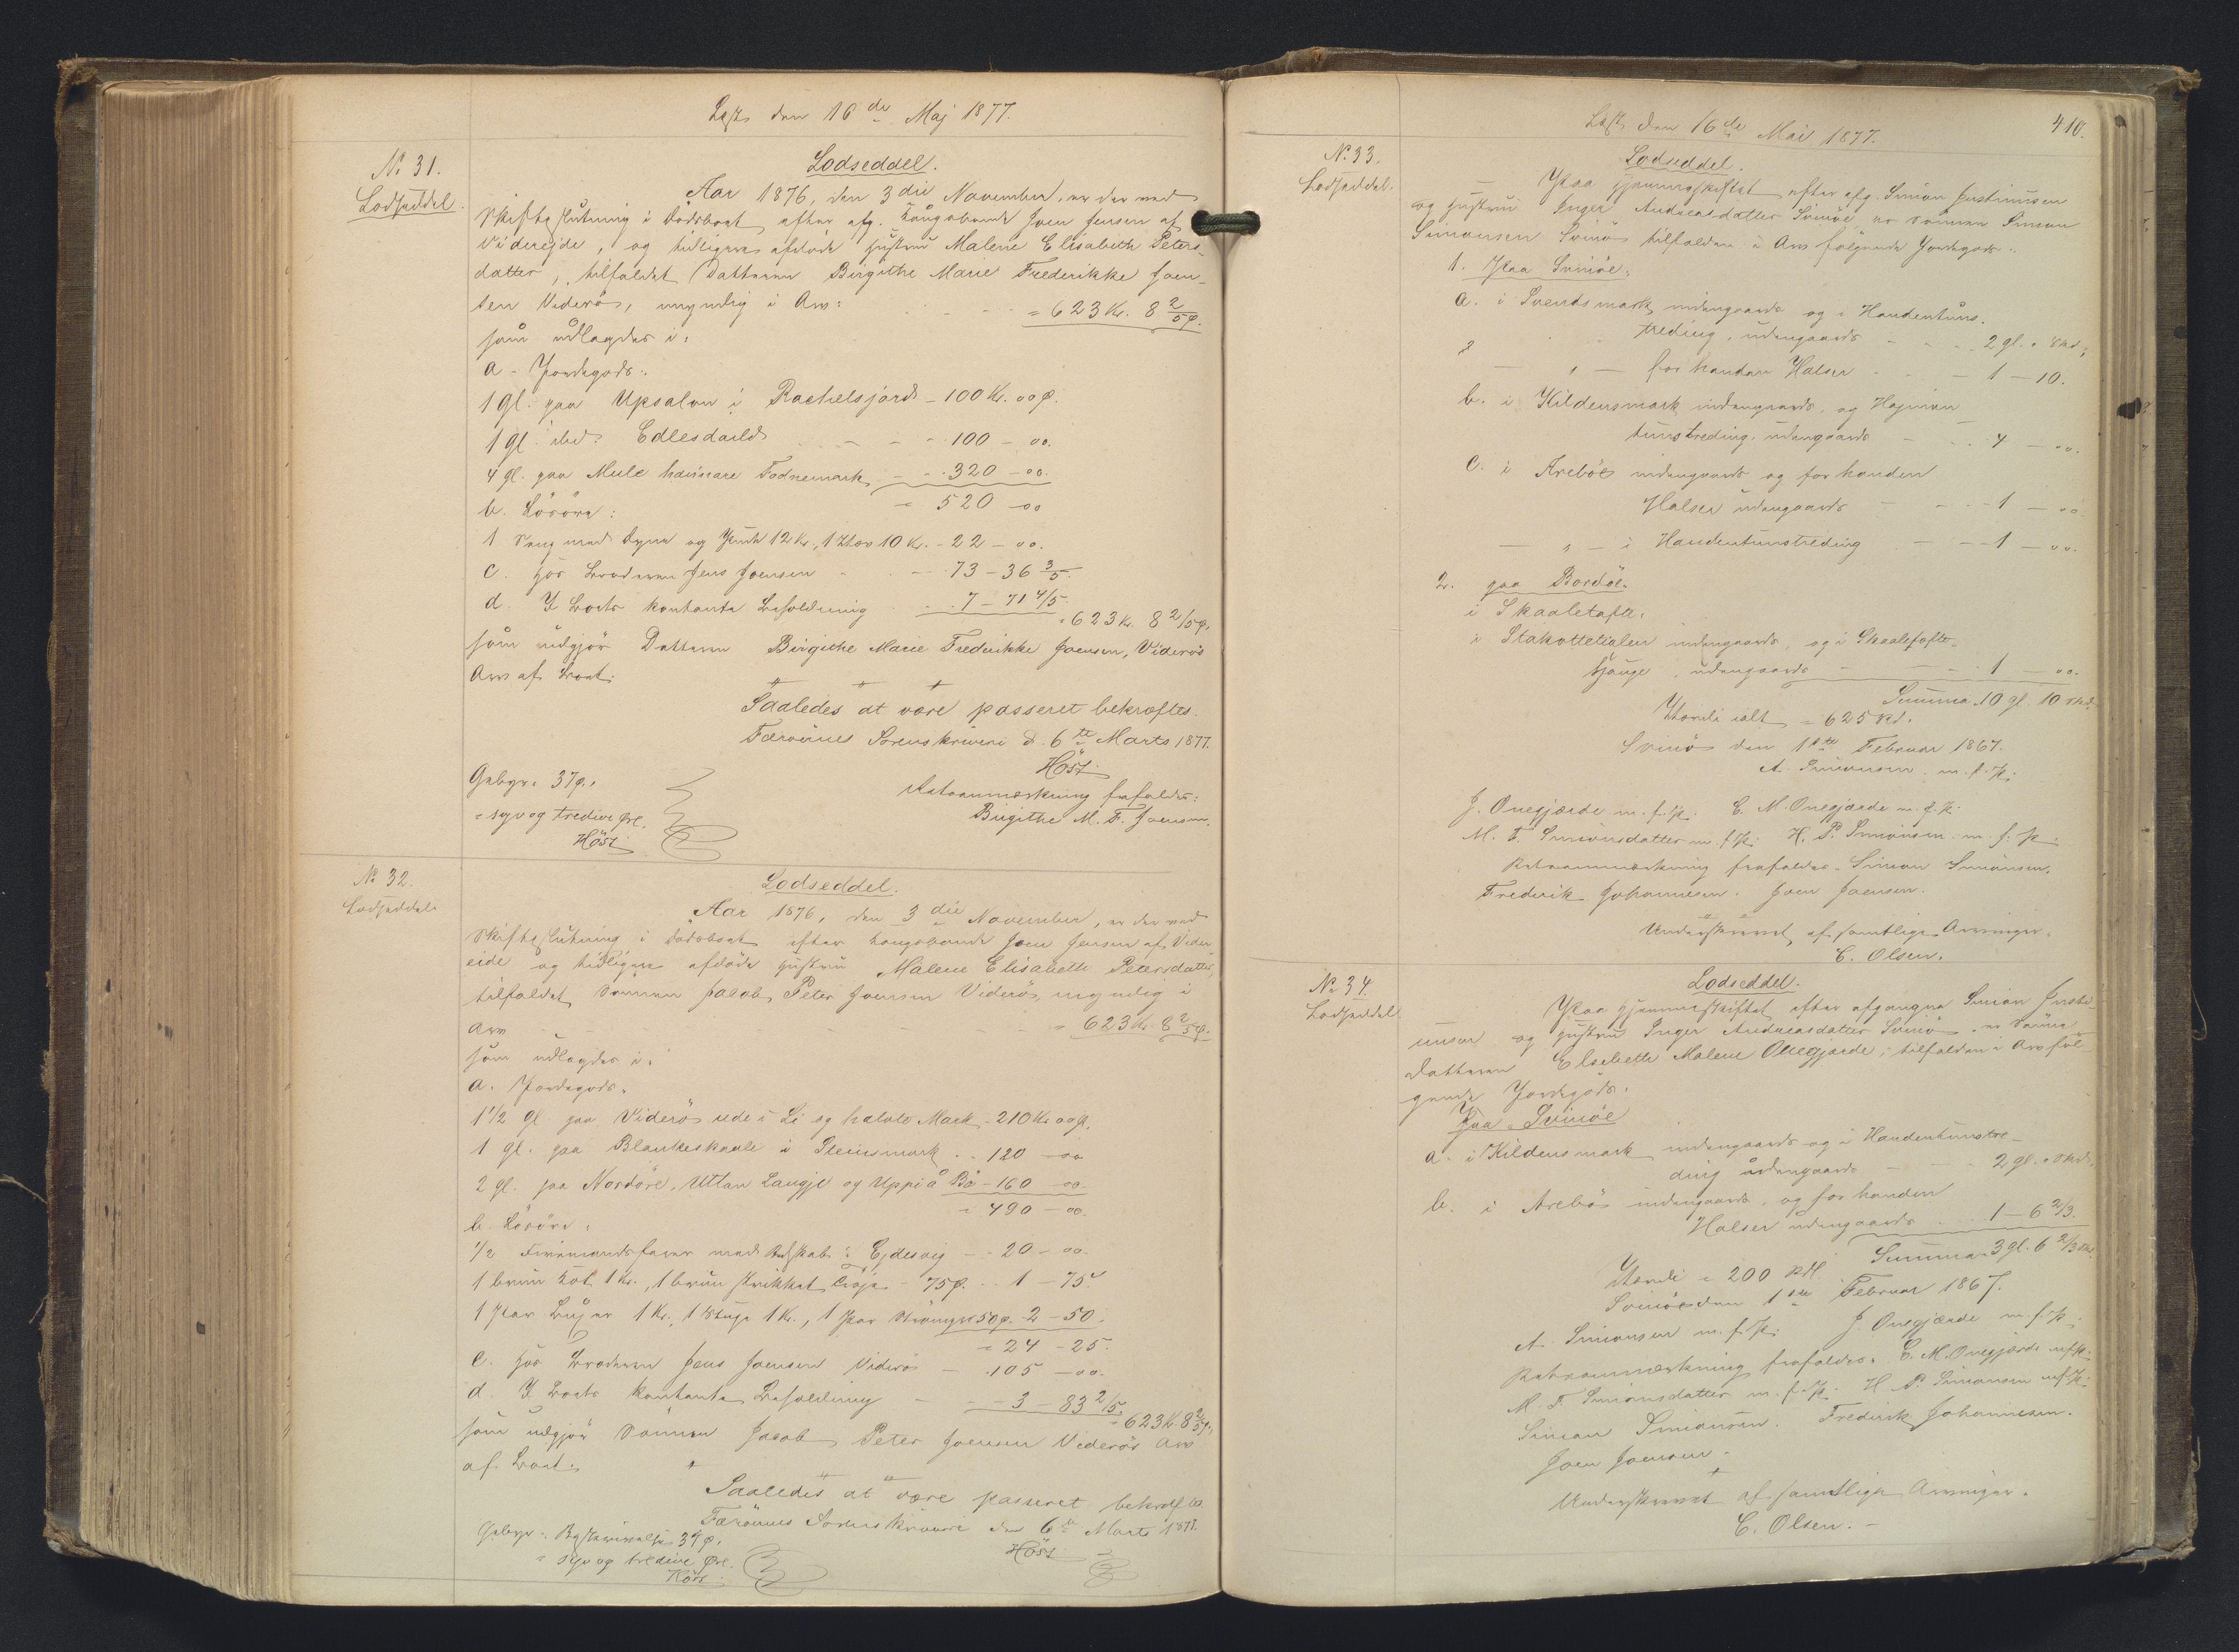 Læst den 16de Maj 1877.
No 31.
Lodseddel.
Lodseddel.
Aar 1876, den 3die November, er der ved
Skifteslutning i Dødsboet efter afg. Kongsbonde Joen Jensen af
Videreide, og tidligere afdøde Hustru Malene Elisabeth Peters-
datter, tilfaldet Datteren Birgithe Marie Frederikke Joen-
sen Viderö, umyndig i Arv: = 623 Kr. 8 2/5 ø.
som udlagdes i:
a - Jordegods:
1 gl. paa Upsalen i Rachelsjord - 100 Kr. 00 ø.
1 gl. ibid. Edlesdaild - - - 100 - 00.
4 gl. paa Mule havnare Fodnemark - - 320 - 00.
= 520 - 00
b. Lösöre:
1 Seng med Dyne og Pude 12 Kr., 1 10 Kr. - 22 - 00.
c. hos Broderen Jens Joensen - - 73 - 36 3/5.
d. I Boets kontante Beholdning - - 7 - 71 4/5.
= 623 Kr. 8 2/5 ø.
som udgjör Datteren Birgithe Marie Frederikke Joensen, Viderös
Arv af Boet.
Saaledes at være passeret bekræftes.
Færöernes Sorenskriveri d. 6te Marts 1877.
Höst
Gebyr: 37 ø.
= syv og tredive Øre.
Höst
Retsanmærkning frafaldes:
Birgithe M. F. Joensen.
No 32.
Lodseddel.
Lodseddel.
Aar 1876, den 3die November, er der ved
Skifteslutning i Dødsboet efter Kongsbonde Joen Jensen af Vider-
eide og tidligere afdöde Hustru Malene Elisabeth Petersdatter,
tilfaldet Sönnen Jacob Peter Joensen Viderö, myndig i
Arv - - - = 623 Kr. 8 2/5 ø.
som udlagdes i:
a. Jordegods:
1 1/2 gl. paa Viderö ude i Li og halvte Mark - 210 Kr. 00 ø.
1 gl. paa Blankeskaale i Steinsmark - - 120 - 00
2 gl. paa Nordöre, Uttan Laugje og Uppi å Bø - 160 - 00.
= 490 - 00.
b. Lösöre:
1/2 Firemandsfarer med Redskab i Ejdesvig - - 20 - 00.
1 brun Kot 1 Kr., 1 brun strikket Tröje - 75 ø. - - 1 - 75.
1 Par Buxer 1 Kr., 1 1 Kr., 1 Par 50 ø. - 2 - 50.
= 24 - 25.
c. hos Broderen Jens Joensen Viderö - 105 - 00.
d. I Boets kontante Beholdning - - 3 - 83 2/5.
= 623 Kr. 8 2/5 ø.
som udgjör Sönnen Jacob Peter Joensen Viderös Arv
af Boet.
Saaledes at være passeret bekræftes.
Færöernes Sorenskriveri den 6te Marts 1877.
Höst
Gebyr: Beskrivelse 37 ø.
= syv og tredive Øre.
Höst
Læst den 16de Mai 1877.
410.
No. 33.
Lodseddel.
Lodseddel.
Paa Hjemmeskiftet efter afg. Simon Justinussen
og Hustru Inger Andreasdatter Svinöe, er Sönnen Simon
Simonsen Svinö tilfalden i Arv følgende Jordegods:
1. Paa Svinöe:
a. i Svendsmark indengaards og i Handentuns-
treding, udengaards - - - 2 gl. 0 Skd.;
- „ - for handan Halsen - - - 1 - 10.
b. i Kildensmark indengaards, og Hejman
tunstreding, udengaards - - - 4 - 00.
c. i Arebö indengaards og for handen
Halsen udengaards - - - 1 - 00.
- „ - i Handentunstreding - - - 1 - 00.
2. paa Bordöe.
i Skaaletofte:
i Stakottetialen indengaards, og i Skaalefofte-
hauge, udengaards - - - 1 - 00.
Summa 10 gl. 10 Skd.
Værdi ialt = 625 Rd.
Svinö den 1ste Februar 1867.
A. Simonsen m. f. P.
J. Onegjærde m. f. P. E. M. Onegjærde m. f. P.
M. F. Simonsdatter m. f. P. H. P. Simonsen m. f. P.
Retsanmærkning frafaldes. Simon Simonsen.
Frederik Johannesen. Joen Joensen.
Underskrevet af samtlige Arvinger.
C. Olsen.
No 34.
Lodseddel.
Lodseddel.
Paa Hjemmeskiftet efter afgangne Simon Justi-
nusen og Hustru Inger Andreasdatter Svinö, er
Datteren Elsebeth Malene Onegjærde, tilfalden i Arv föl-
gende Jordegods:
Paa Svinöe
a. i Kildensmark indengaards og i Handentunstre-
ding udengaards - - - 2 gl. 0 Skd.
b. i Arebö indengaards, og for handen
Halsen udengaards - - 1 - 6 2/3.
Summa 3 gl. 6 2/3 Skd.
Værdi = 200 Rdl.
Svinöe den 1ste Februar 1867.
A. Simonsen m. f. P. J. Onegjærde m. f. P.
Retsanmærkning frafaldes. E. M. Onegjærde m. f. P.
M. F. Simonsdatter m. f. P. H. P. Simonsen m. f. P.
Simon Simonsen. Frederik Johannesen.
Joen Joensen.
Underskrevet af samtlige Arvinger.
C. Olsen.